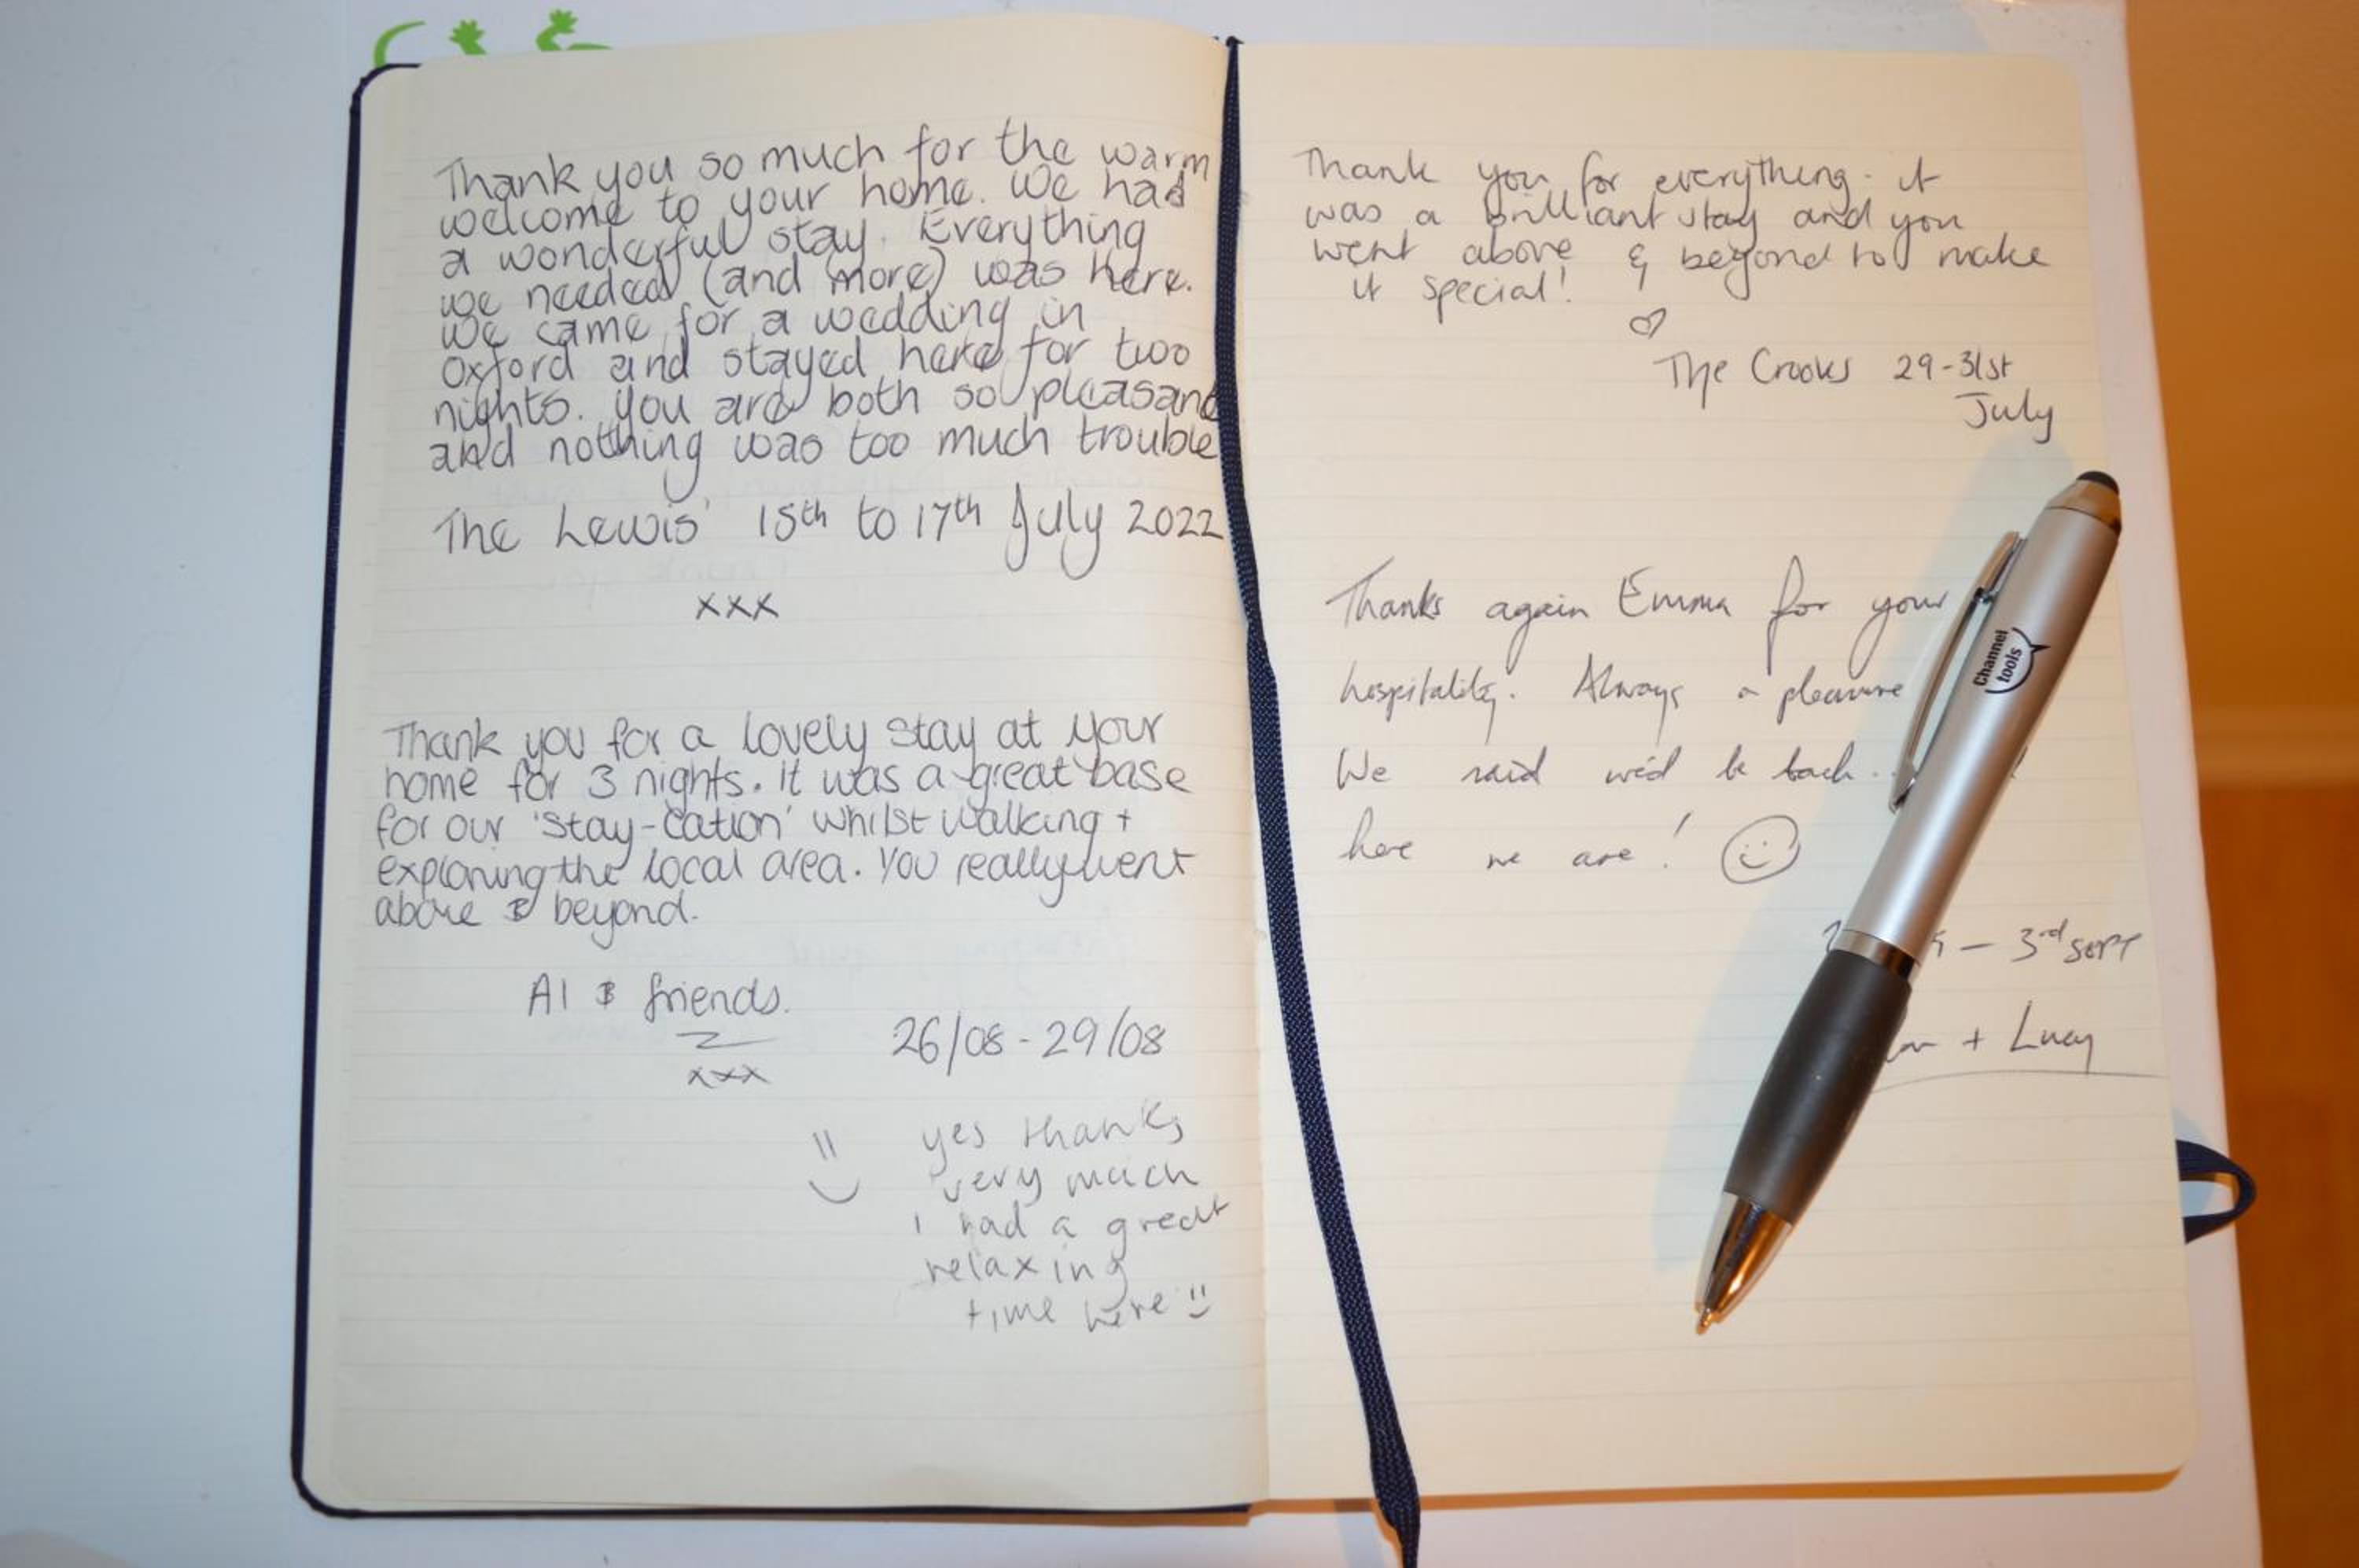 Thank you so much for the warm
welcome to your home. We had
a wonderful stay. Everything
we needed (and more) was here.
We came for a wedding in
Oxford and stayed here for two
nights. You are both so pleasant
and nothing was too much trouble
The Lewis' 15th to 17th July 2022
xxx
Thank you for a lovely stay at your
home for 3 nights. It was a great base
for our 'stay-cation' whilst walking +
exploring the local area. You really went
above & beyond.
Al & friends.
xxx
26/08 - 29/08
yes thanks
very much
I had a great
relaxing
time here
Thank you for everything. it
was a brilliant stay and you
went above & beyond to make
it special!
The Crooks 29-31st
July
Thanks again Emma for your
hospitality. Always a pleasure
We said we'd be back..
here we are!
- 3rd SEPT
+ Lucy
Channel
tools